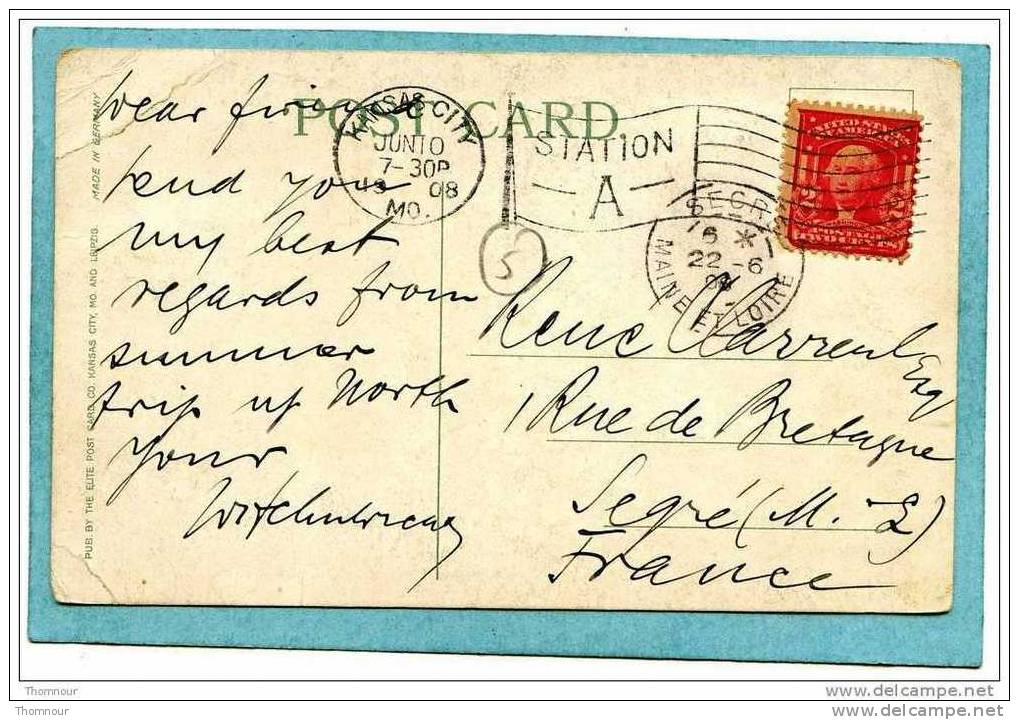 POST CARD
Dear friend
send you
my best
regards from
summer
trip up North
Yours
KANSAS CITY
JUN 10
7-30P
19 08
MO.
STATION
A
SEGRE
16 *
22 -6
08
MAINE ET LOIRE
UNITED STATES
OF AMERICA
2
5
Rene
Esq
1 Rue de Bretagne
Segré (M.-L)
France
PUB. BY THE ELITE POST CARD CO. KANSAS CITY, MO. AND LEIPZIG. MADE IN GERMANY
Thomnour
Thomnour
www.delcampe.net
www.delcampe.net